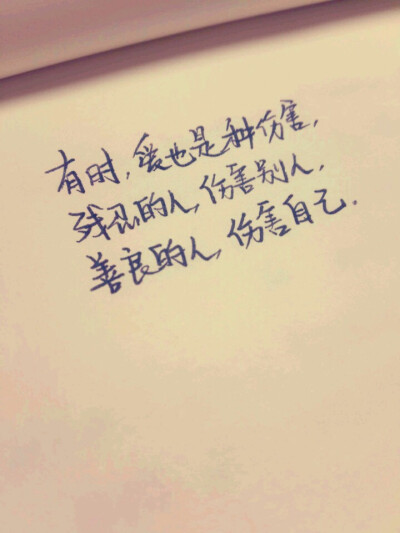 有时,爱也是种伤害,
残忍的人,伤害别人,
善良的人,伤害自己.